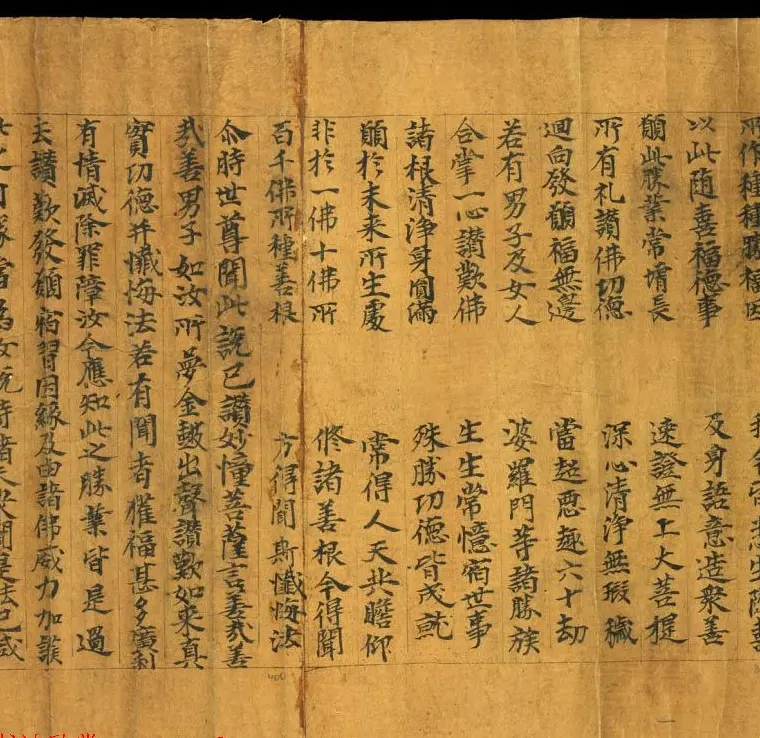 所作種種勝福因 我今皆悉生隨喜
以此隨喜福德事 及身語意造衆善
願此勝業常增長 速證無上大菩提
所有礼讚佛功德 深心清淨無瑕穢
迴向發願福無邊 當起惡趣六十劫
若有男子及女人 婆羅門等諸勝族
合掌一心讚歎佛 生生常憶宿世事
諸根清淨身圓滿 殊勝功德皆成就
願於未来所生處 常得人天共瞻仰
非於一佛十佛所 修諸善根今得聞
百千佛所種善根 方得聞斯懺悔法
尒時世尊聞此說已讚妙幢菩薩言善哉善
哉善男子如汝所夢金皷出聲讚歎如來真
實功德并懺悔法若有聞者獲福甚多廣利
有情滅除罪障汝今應知此之勝業皆是過
去讚歎發願宿習因緣及由諸佛威力加護
此之因緣當為汝說時諸大衆聞是法已咸
400